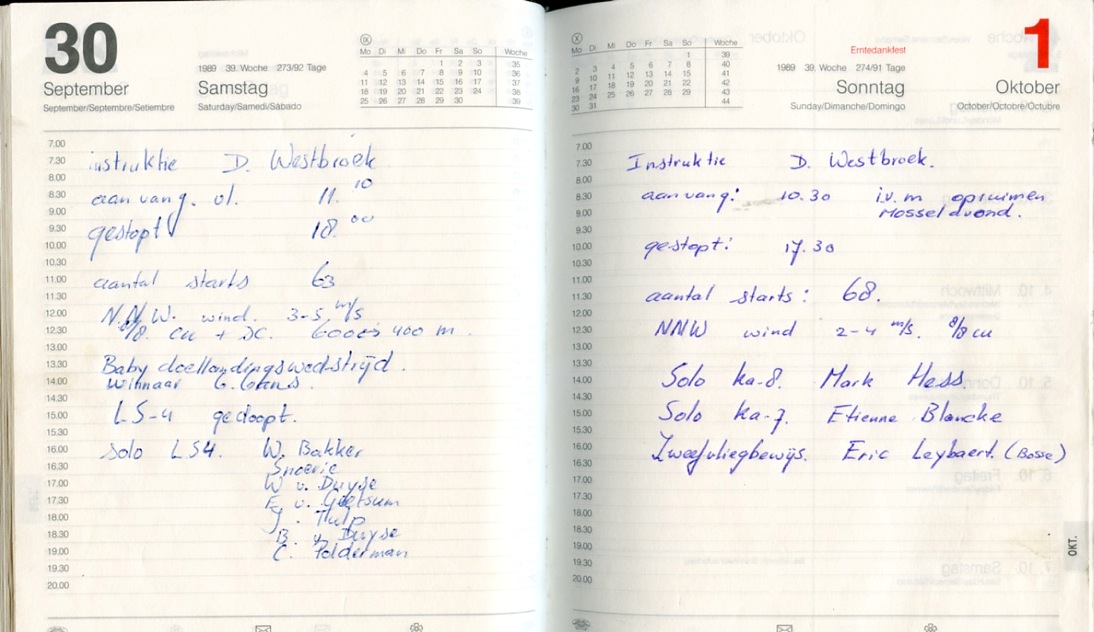 30
September
September/Septembre/Setiembre
1989 39. Woche 273/92 Tage
Samstag
Saturday/Samedi/Sábado
IX
Mo Di Mi Do Fr Sa So Woche
1 2 3 35
4 5 6 7 8 9 10 36
11 12 13 14 15 16 17 37
18 19 20 21 22 23 24 38
25 26 27 28 29 30 39
7.00
7.30 instruktie D. Westbroek
8.00
8.30 aanvang. vl. 11.10
9.00
9.30 gestopt 18.00
10.00
10.30
11.00 aantal starts 63
11.30
12.00 N.N.W. wind. 3-5 m/s
12.30 /8 cu + DC. 600 à 400 m.
13.00
13.30 Baby doellandingswedstrijd.
14.00 Winnaar G.
14.30
15.00 LS-4 gedoopt.
15.30
16.00 solo LS4. W. Bakker
16.30 Snoerie
17.00 W v. Duyse
17.30 E v.
18.00 J. Thulp
18.30 B. v Duyse
19.00 C. Polderman
19.30
20.00
X
Mo Di Mi Do Fr Sa So Woche
1 39
2 3 4 5 6 7 8 40
9 10 11 12 13 14 15 41
16 17 18 19 20 21 22 42
23 24 25 26 27 28 29 43
30 31 44
Erntedankfest
1989 39. Woche 274/91 Tage
Sonntag
Sunday/Dimanche/Domingo
1
Oktober
October/Octobre/Octubre
7.00
7.30 Instruktie D. Westbroek.
8.00
8.30 aanvang: 10.30 i.v.m opruimen
9.00 Mosselavond.
9.30
10.00 gestopt: 17.30
10.30
11.00
11.30 aantal starts: 68.
12.00
12.30 NNW wind 2-4 m/s. 8/8 cu
13.00
13.30
14.00 Solo ka-8. Mark Hess.
14.30
15.00 Solo ka-7. Etienne Blancke
15.30
16.00 Zweefvliegbewijs. Eric Leybaert. (Bosse)
16.30
17.00
17.30
18.00
18.30
19.00
19.30
20.00
OKT.